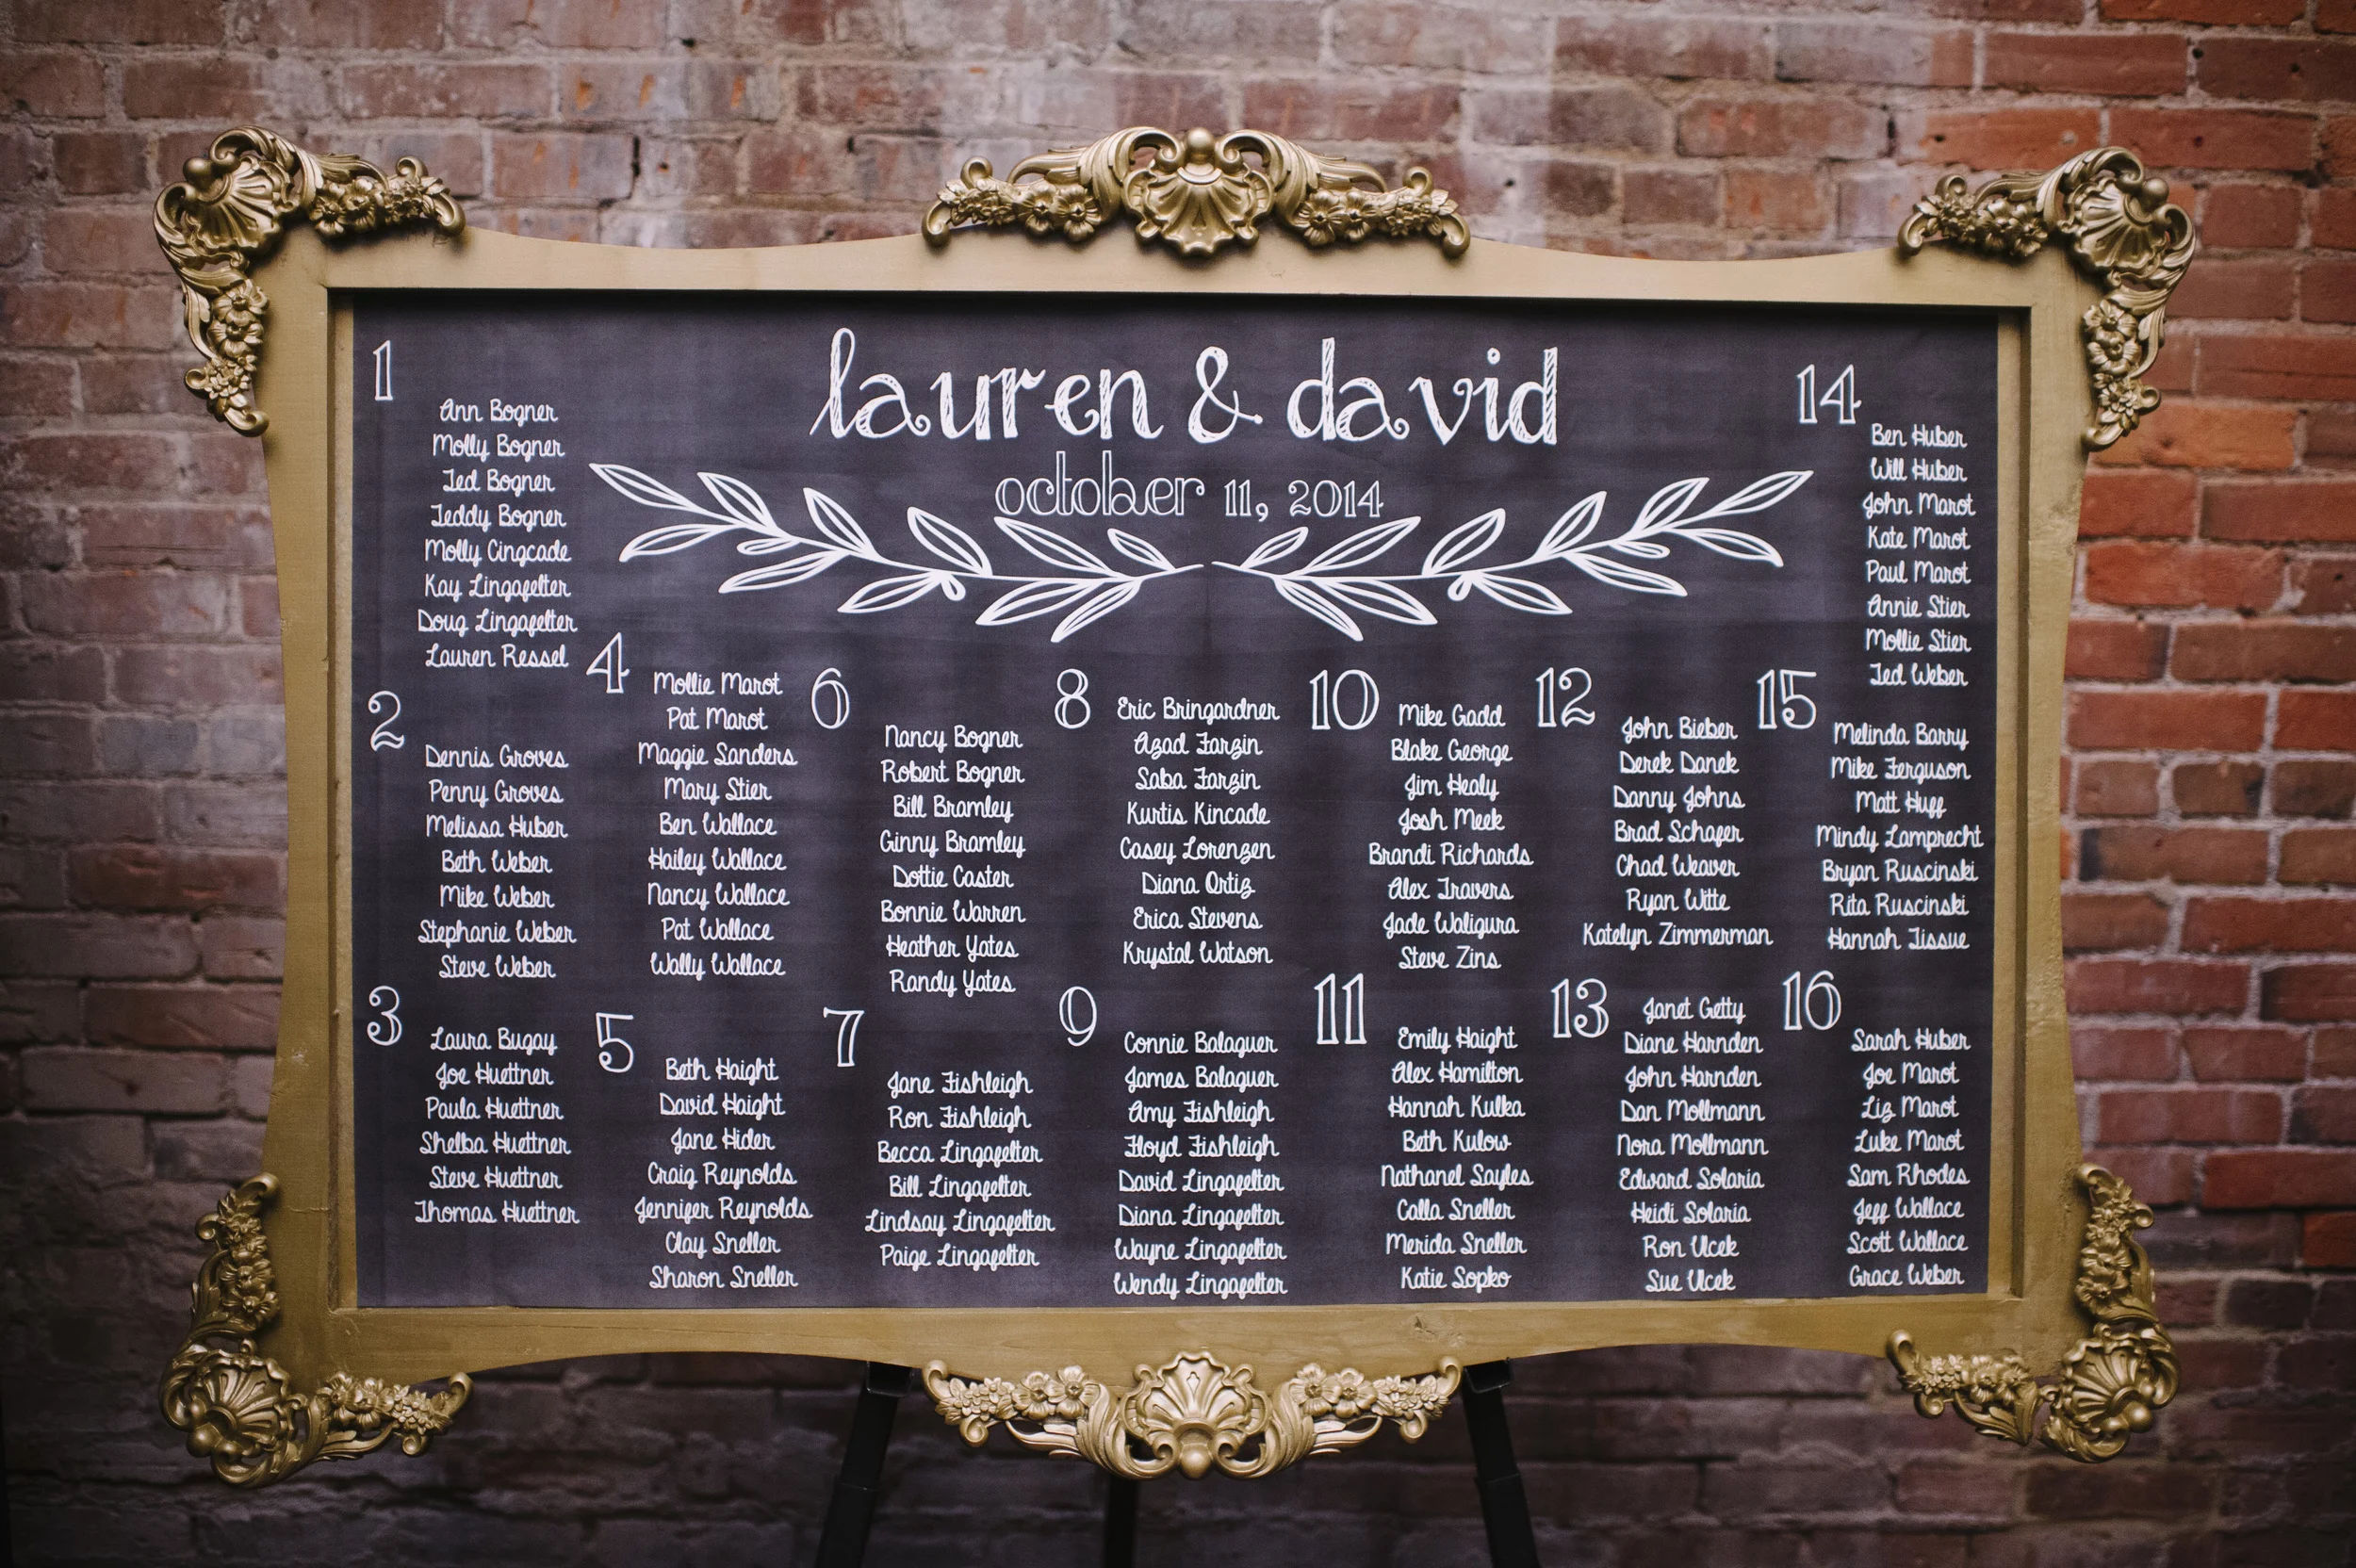 lauren & david
october 11, 2014
1
Ann Bogner
Molly Bogner
Ted Bogner
Teddy Bogner
Molly Cingcade
Kay Lingafelter
Doug Lingafelter
Lauren Ressel
2
Dennis Groves
Penny Groves
Melissa Huber
Beth Weber
Mike Weber
Stephanie Weber
Steve Weber
3
Laura Bugay
Joe Huettner
Paula Huettner
Shelba Huettner
Steve Huettner
Thomas Huettner
4
Mollie Marot
Pat Marot
Maggie Sanders
Mary Stier
Ben Wallace
Hailey Wallace
Nancy Wallace
Pat Wallace
Wally Wallace
5
Beth Haight
David Haight
Jane Hider
Craig Reynolds
Jennifer Reynolds
Clay Sneller
Sharon Sneller
6
Nancy Bogner
Robert Bogner
Bill Bramley
Ginny Bramley
Dottie Caster
Bonnie Warren
Heather Yates
Randy Yates
7
Jane Fishleigh
Ron Fishleigh
Becca Lingafelter
Bill Lingafelter
Lindsay Lingafelter
Paige Lingafelter
8
Eric Bringardner
Azad Farzin
Saba Farzin
Kurtis Kincade
Casey Lorenzen
Diana Ortiz
Erica Stevens
Krystal Watson
9
Connie Balaguer
James Balaguer
Amy Fishleigh
Floyd Fishleigh
David Lingafelter
Diana Lingafelter
Wayne Lingafelter
Wendy Lingafelter
10
Mike Gadd
Blake George
Jim Healy
Josh Meek
Brandi Richards
Alex Travers
Jade Waligura
Steve Zins
11
Emily Haight
Alex Hamilton
Hannah Kulka
Beth Kulow
Nathanel Sayles
Calla Sneller
Merida Sneller
Katie Sopko
12
John Bieber
Derek Danek
Danny Johns
Brad Schafer
Chad Weaver
Ryan Witte
Katelyn Zimmerman
13
Janet Getty
Diane Harnden
John Harnden
Dan Mollmann
Nora Mollmann
Edward Solaria
Heidi Solaria
Ron Ulcek
Sue Ulcek
14
Ben Huber
Will Huber
John Marot
Kate Marot
Paul Marot
Annie Stier
Mollie Stier
Ted Weber
15
Melinda Barry
Mike Ferguson
Matt Huff
Mindy Lamprecht
Bryan Ruscinski
Rita Ruscinski
Hannah Tissue
16
Sarah Huber
Joe Marot
Liz Marot
Luke Marot
Sam Rhodes
Jeff Wallace
Scott Wallace
Grace Weber